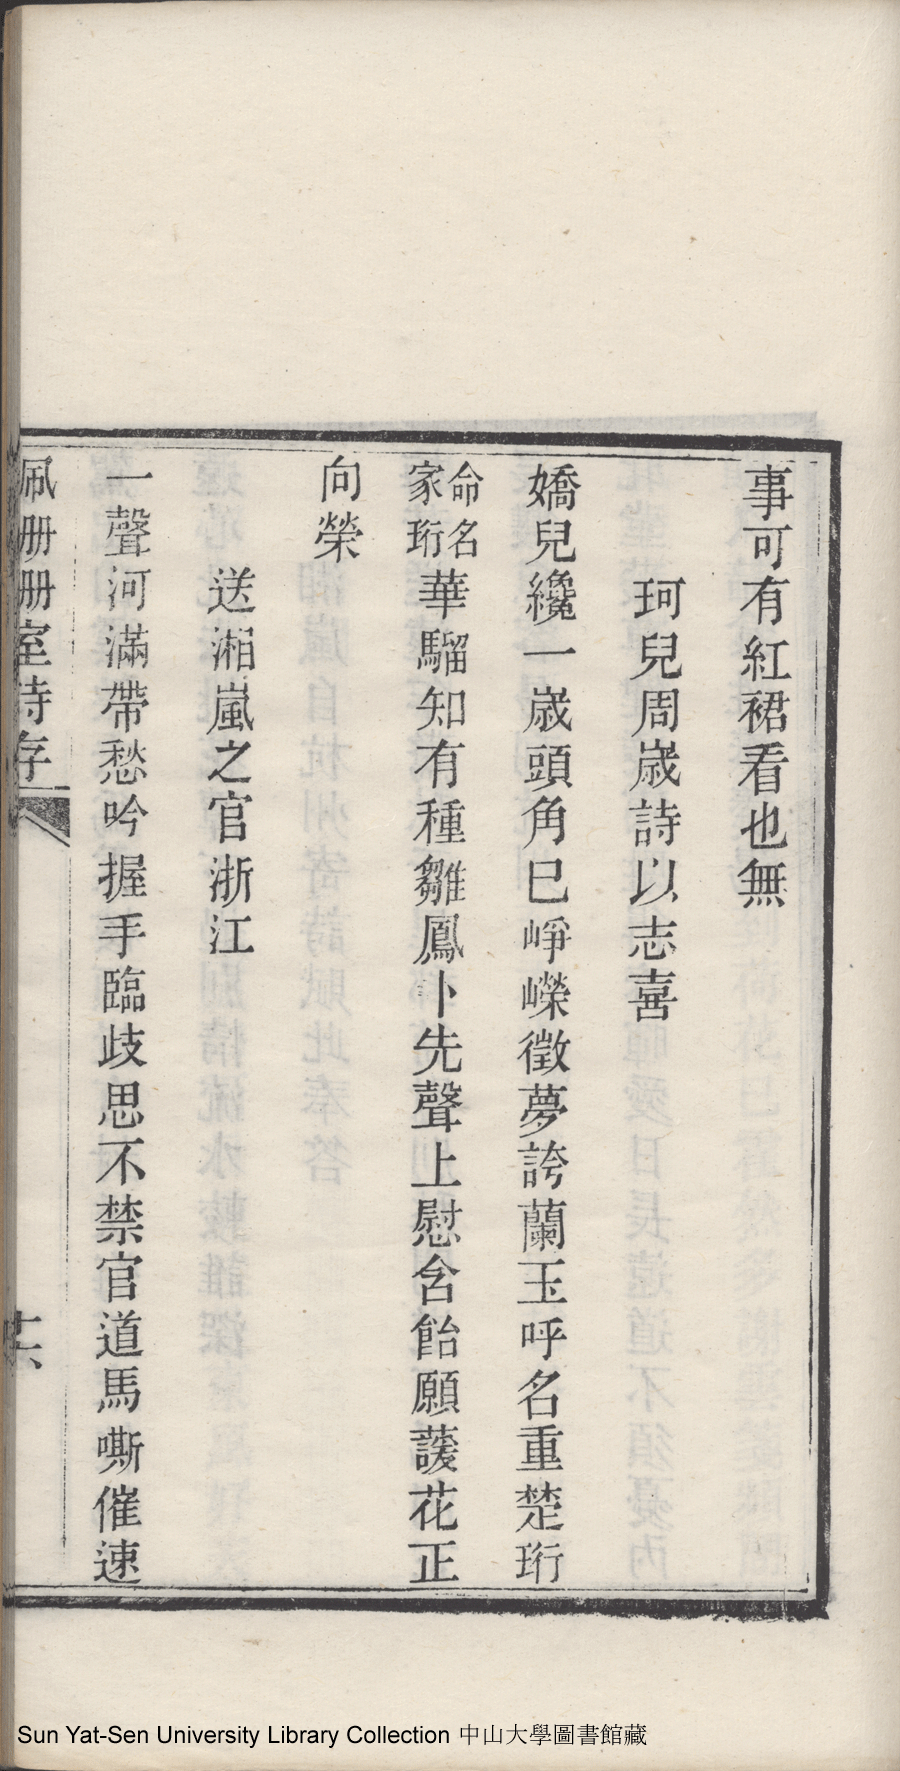 事可有紅裙看也無
珂兒周歲詩以志喜
嬌兒纔一歲頭角巳崢嶸徵夢誇蘭玉呼名重楚珩
命名
家珩
華騮知有種雛鳳卜先聲上慰含飴願護花正
向榮
送湘嵐之官浙江
一聲河滿帶愁吟握手臨歧思不禁官道馬嘶催速
佩册册室詩存
十六
Sun Yat-Sen University Library Collection 中山大學圖書館藏